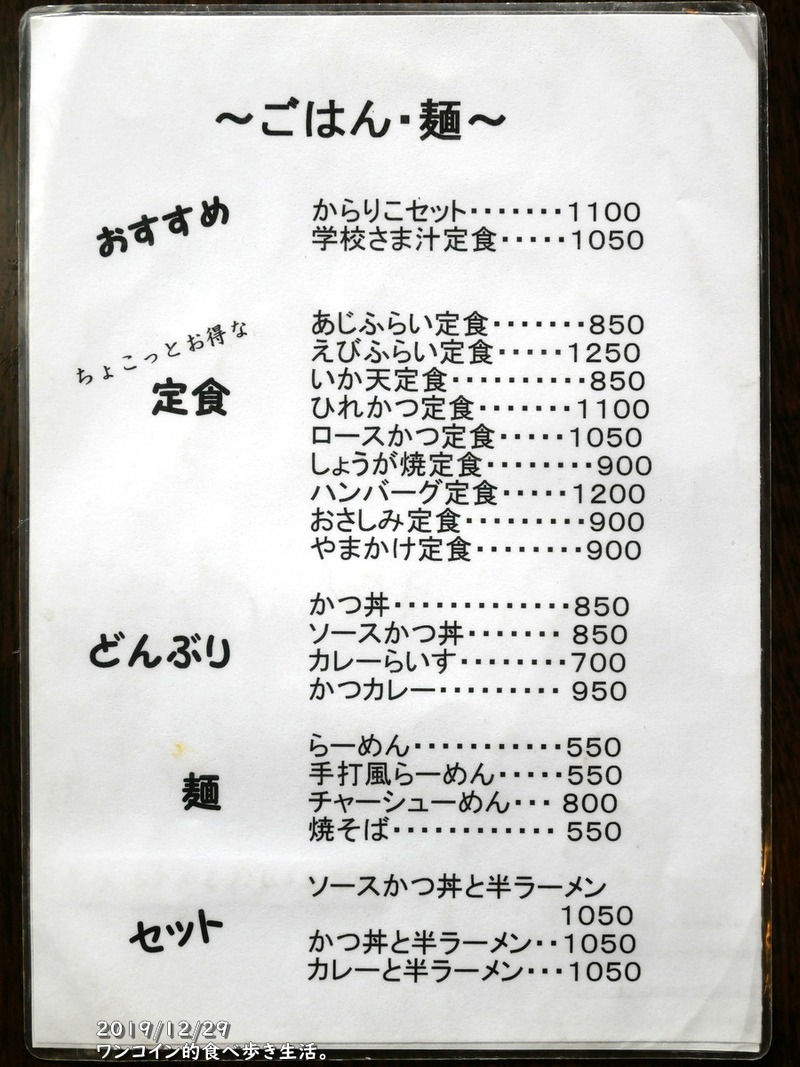 ～ごはん・麺～
おすすめ
からりこセット・・・・・・・・1100
学校さま汁定食・・・・・1050
ちょこっとお得な
定食
あじふらい定食・・・・・・・850
えびふらい定食・・・・・1250
いか天定食・・・・・・・・・・850
ひれかつ定食・・・・・・・1100
ロースかつ定食・・・・・1050
しょうが焼定食・・・・・・・・900
ハンバーグ定食・・・・・1200
おさしみ定食・・・・・・・・・900
やまかけ定食・・・・・・・・900
どんぶり
かつ丼・・・・・・・・・・・・・850
ソースかつ丼・・・・・・・ 850
カレーらいす・・・・・・・・700
かつカレー・・・・・・・・・ 950
麺
らーめん・・・・・・・・・・・550
手打風らーめん・・・・・550
チャーシューめん・・・ 800
焼そば・・・・・・・・・・・・ 550
セット
ソースかつ丼と半ラーメン
1050
かつ丼と半ラーメン・・1050
カレーと半ラーメン・・・1050
2019/12/29
ワンコイン的食べ歩き生活。